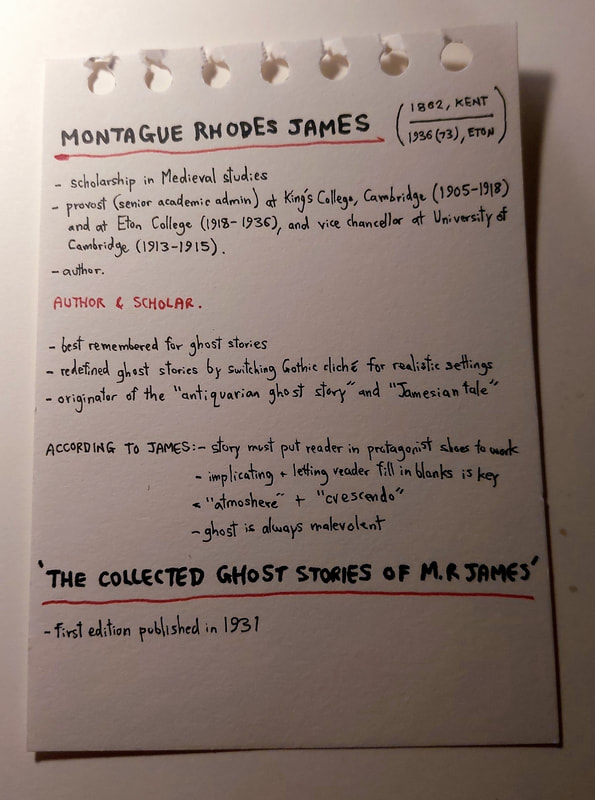 MONTAGUE RHODES JAMES (1862, KENT
1936 (73), ETON)
- scholarship in Medieval studies
- provost (senior academic admin) at King's College, Cambridge (1905-1918)
and at Eton College (1918-1936), and vice chancellor at University of
Cambridge (1913-1915).
- author.
AUTHOR & SCHOLAR.
- best remembered for ghost stories
- redefined ghost stories by switching Gothic cliché for realistic settings
- originator of the "antiquarian ghost story" and "Jamesian tale"
ACCORDING TO JAMES: - story must put reader in protagonist shoes to work
- implicating + letting reader fill in blanks is key
- "atmoshere" + "crescendo"
- ghost is always malevolent
'THE COLLECTED GHOST STORIES OF M.R JAMES'
- first edition published in 1931